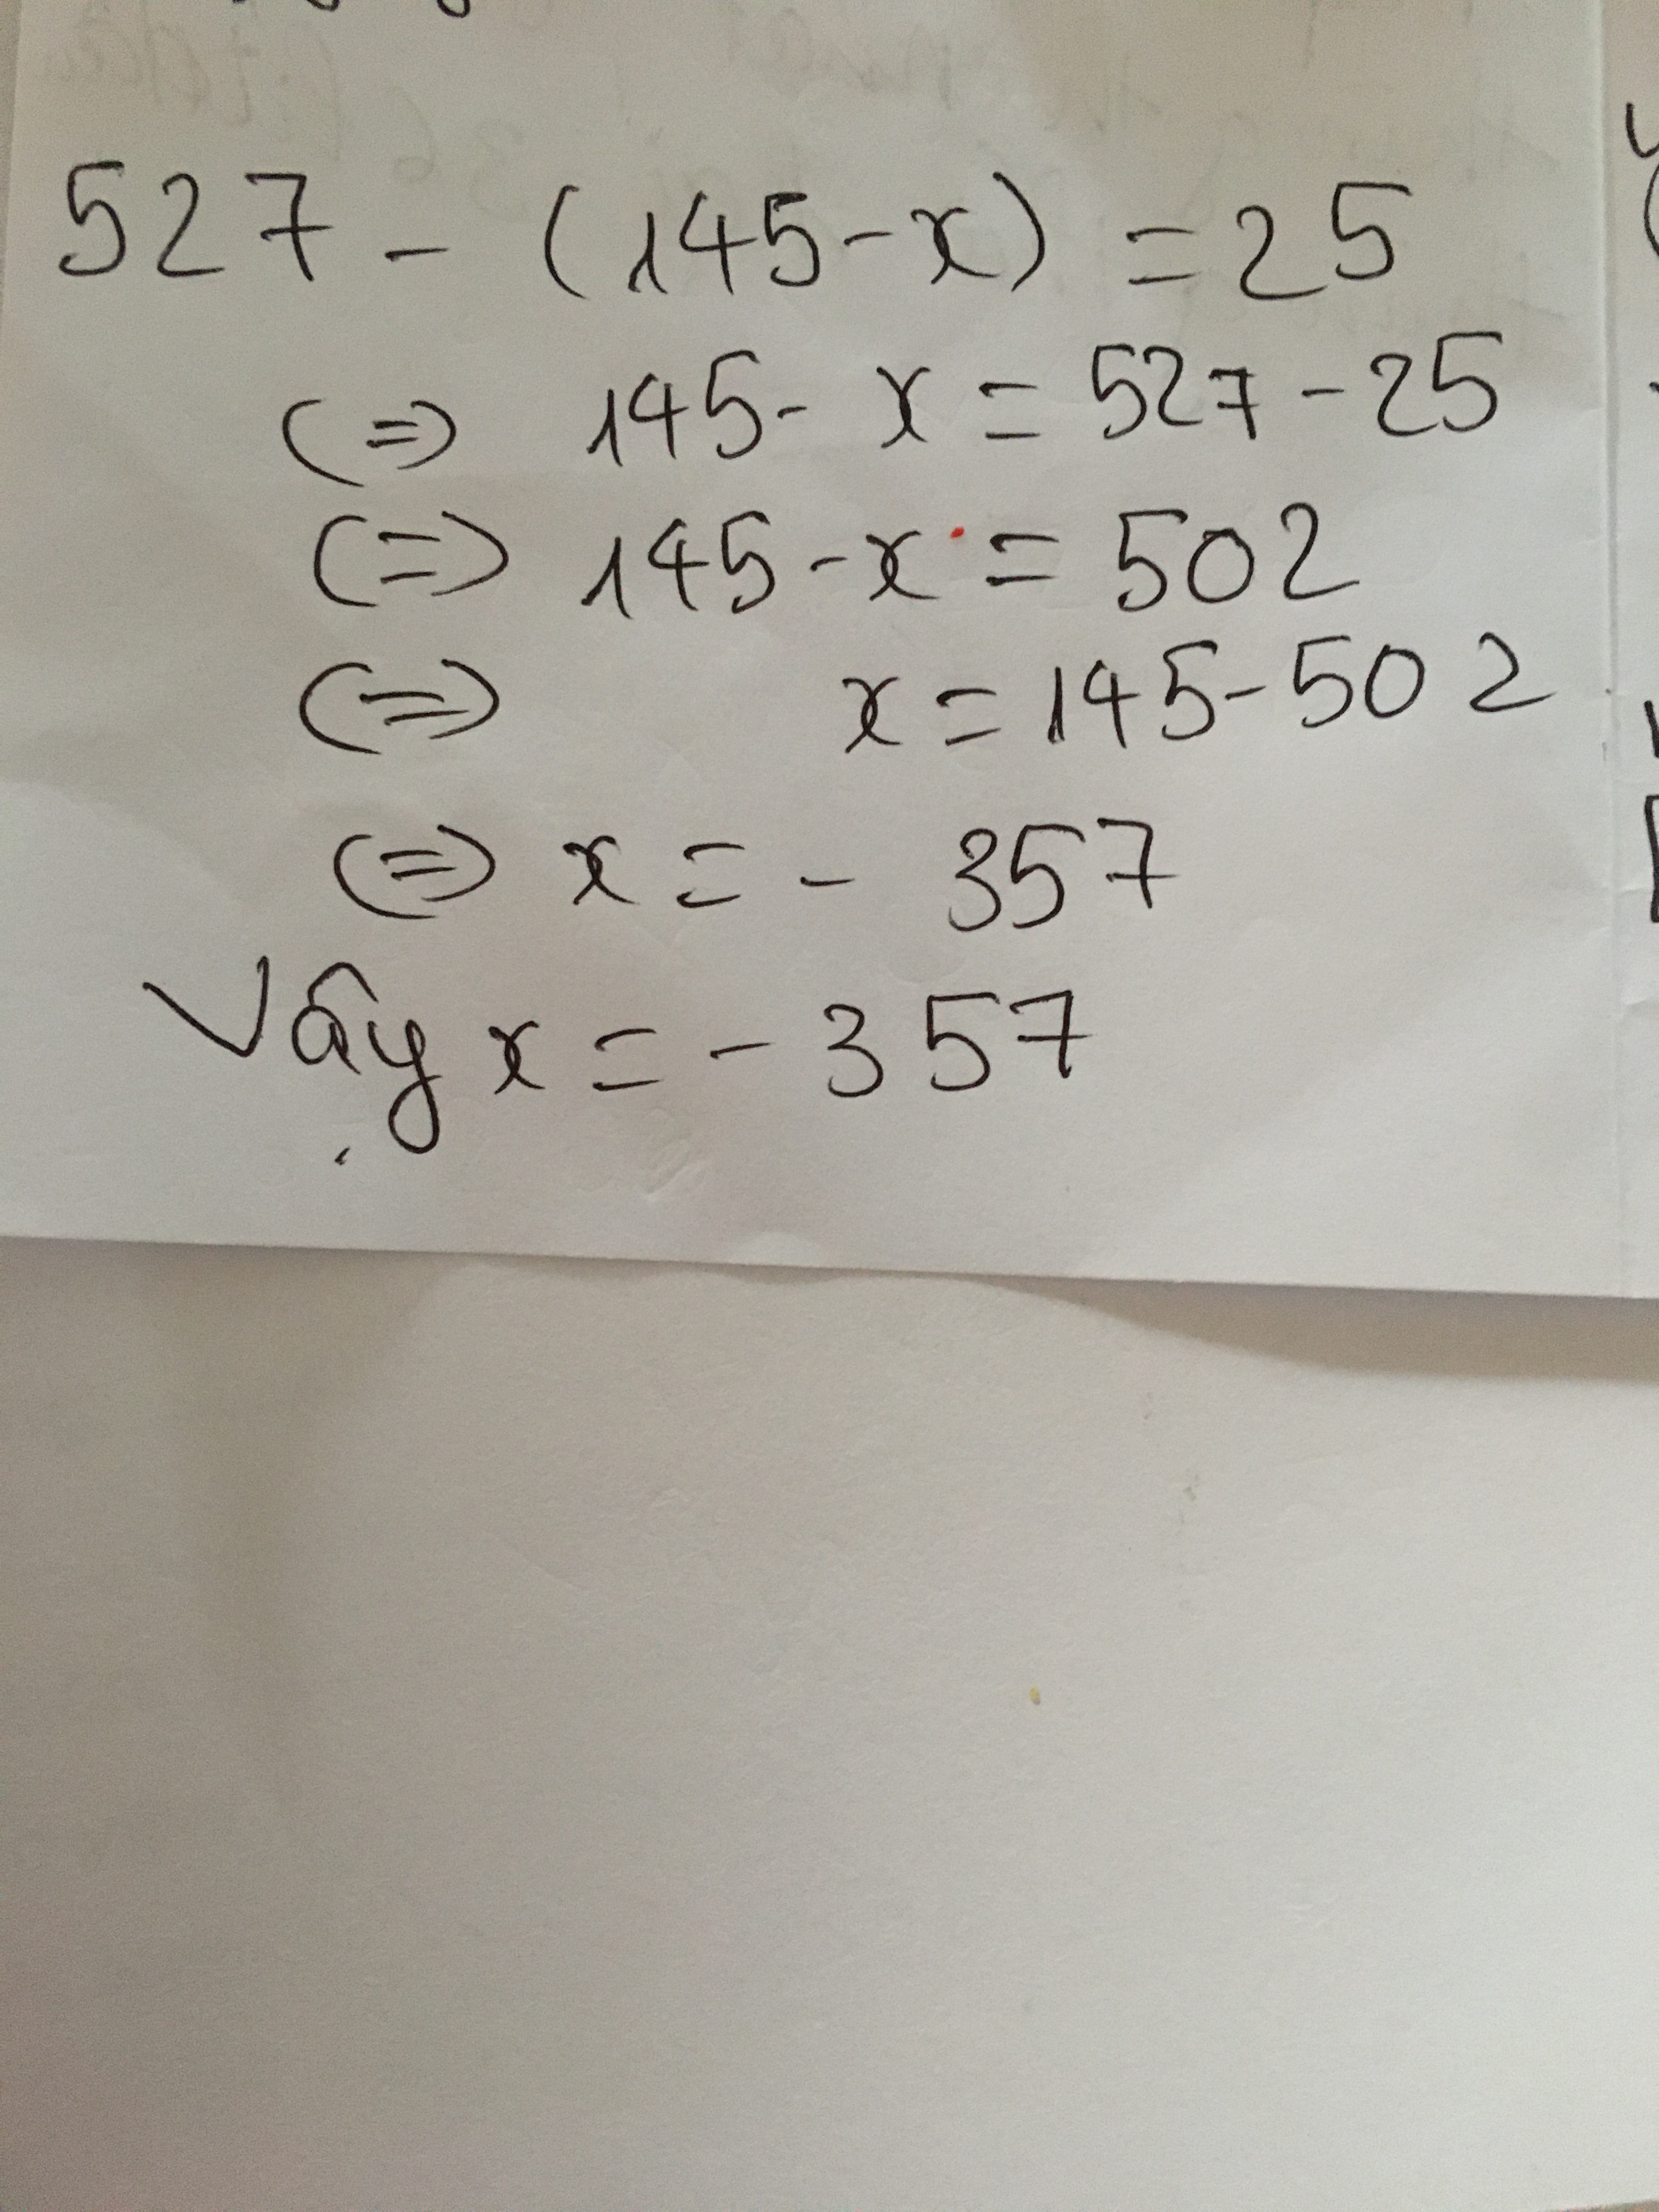 527 - (145-x) = 25
(=) 145 - x = 527 - 25
(=) 145 - x = 502
(=) x = 145 - 502
(=) x = - 357
Vậy x = - 357